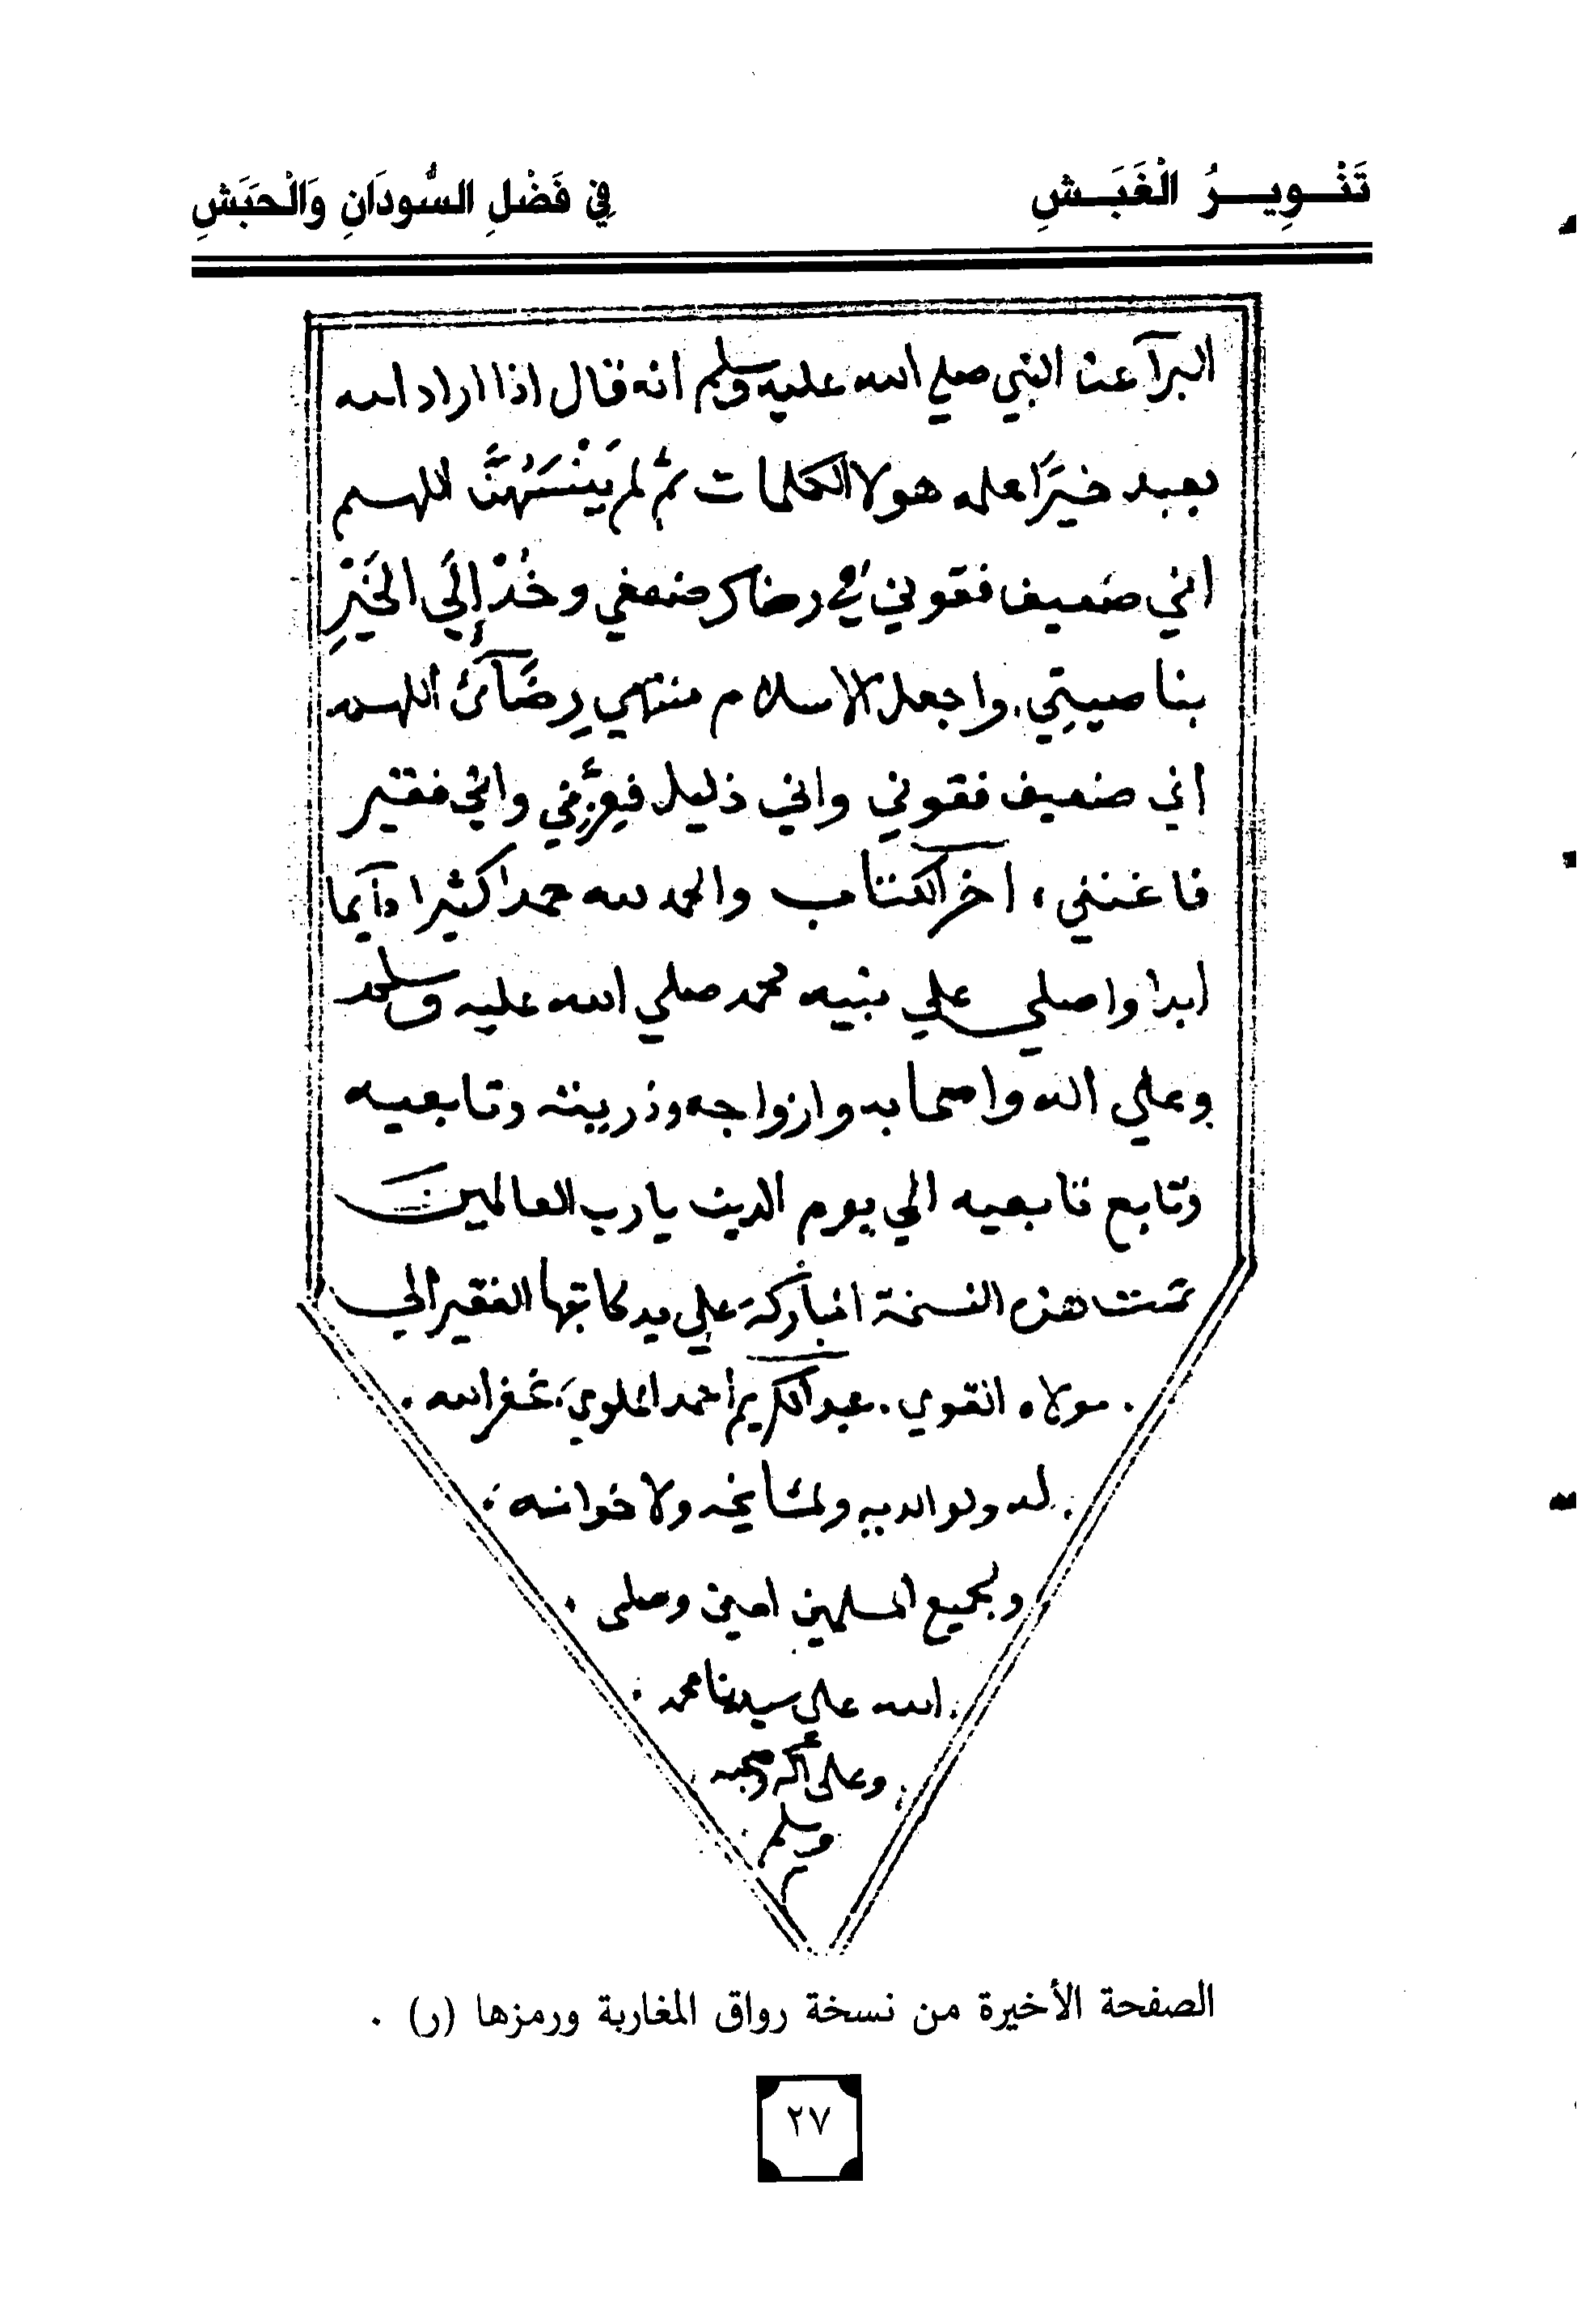 تَنْـوِيـرُ الْغَبَـشِ
فِي فَضْلِ السُّودَانِ وَالْحَبَشِ
البرآ عن النبي صلي الله عليه وسلم انه قال اذا اراد الله
بعبد خيرًا علمه هولا الكلمات ثم لم يَنْسَهُنَّ اللهم
اني ضعيف فقوني في رضاك ضعفي وخُذْ إلَي الخَيْرِ
بناصيتِي واجعل الاسلام منتهي رِضَآئ اللهم
اني ضعيف فقوني واني ذليل فعِزَّني واني فقير
فاغنني، اخر الكتاب والحمد لله حمدا كثيرا دآيما
ابدا واصلي علي نبيه محمد صلي الله عليه وسلم
وعلي اله واصحابه وازواجه وذريته وتابعيه
وتابع تابعيه الي يوم الدين يارب العالمين
تمت هذه النسخة المباركة علي يد كاتبها الفقير الي
مولاه القوي. عبد الكريم احمد الملوي، غفر الله.
له ولوالديه ولمشايخه ولاخوانه
ولجميع المسلمين امين وصلى
الله على سيدنا محمد
وعلى آله وصحبه
وسلم
م
الصفحة الأخيرة من نسخة رواق المغاربة ورمزها (ر) .
٢٧